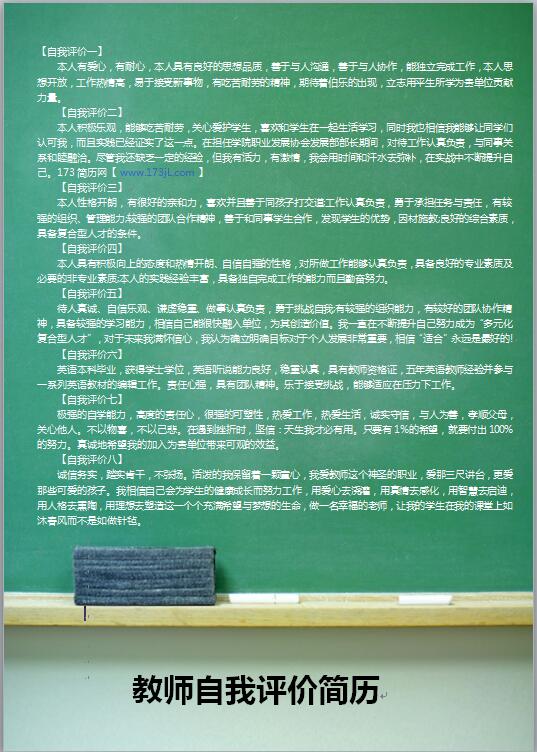 【自我评价一】
本人有爱心，有耐心，本人具有良好的思想品质，善于与人沟通，善于与人协作，能独立完成工作，本人思
想开放，工作热情高，易于接受新事物，有吃苦耐劳的精神，期待着伯乐的出现，立志用平生所学为贵单位贡献
力量。
【自我评价二】
本人积极乐观，能够吃苦耐劳，关心爱护学生，喜欢和学生在一起生活学习，同时我也相信我能够让同学们
认可我，而且实践已经证实了这一点。在担任学院职业发展协会发展部部长期间，对待工作认真负责，与同事关
系和睦融洽。尽管我还缺乏一定的经验，但我有活力，有激情，我会用时间和汗水去弥补，在实战中不断提升自
己。173 简历网【 www.173jL.com 】
【自我评价三】
本人性格开朗，有很好的亲和力，喜欢并且善于同孩子打交道工作认真负责，勇于承担任务与责任，有较
强的组织、管理能力;较强的团队合作精神，善于和同事学生合作，发现学生的优势，因材施教;良好的综合素质，
具备复合型人才的条件。
【自我评价四】
本人具有积极向上的态度和热情开朗、自信自强的性格，对所做工作能够认真负责，具备良好的专业素质及
必要的非专业素质;本人的实践经验丰富，具备独自完成工作的能力而且勤奋努力。
【自我评价五】
待人真诚、自信乐观、谦虚稳重、做事认真负责，勇于挑战自我;有较强的组织能力，有较好的团队协作精
神，具备较强的学习能力，相信自己能很快融入单位，为其创造价值。我一直在不断提升自己努力成为“多元化
复合型人才”，对于未来我满怀信心，我认为确立明确目标对于个人发展非常重要，相信“适合”永远是最好的!
【自我评价六】
英语本科毕业，获得学士学位，英语听说能力良好，稳重认真，具有教师资格证，五年英语教师经验并参与
一系列英语教材的编辑工作。责任心强，具有团队精神。乐于接受挑战，能够适应在压力下工作。
【自我评价七】
极强的自学能力，高度的责任心，很强的可塑性，热爱工作，热爱生活，诚实守信，与人为善，孝顺父母，
关心他人。不以物喜，不以己悲。在遇到挫折时，坚信：天生我才必有用。只要有 1%的希望，就要付出 100%
的努力。真诚地希望我的加入为贵单位带来可观的效益。
【自我评价八】
诚信务实，踏实肯干，不张扬。活泼的我保留着一颗童心，我爱教师这个神圣的职业，爱那三尺讲台，更爱
那些可爱的孩子。我相信自己会为学生的健康成长而努力工作，用爱心去浇灌，用真情去感化，用智慧去启迪，
用人格去熏陶，用理想去塑造这一个个充满希望与梦想的生命，做一名幸福的老师，让我的学生在我的课堂上如
沐春风而不是如做针毡。
教师自我评价简历